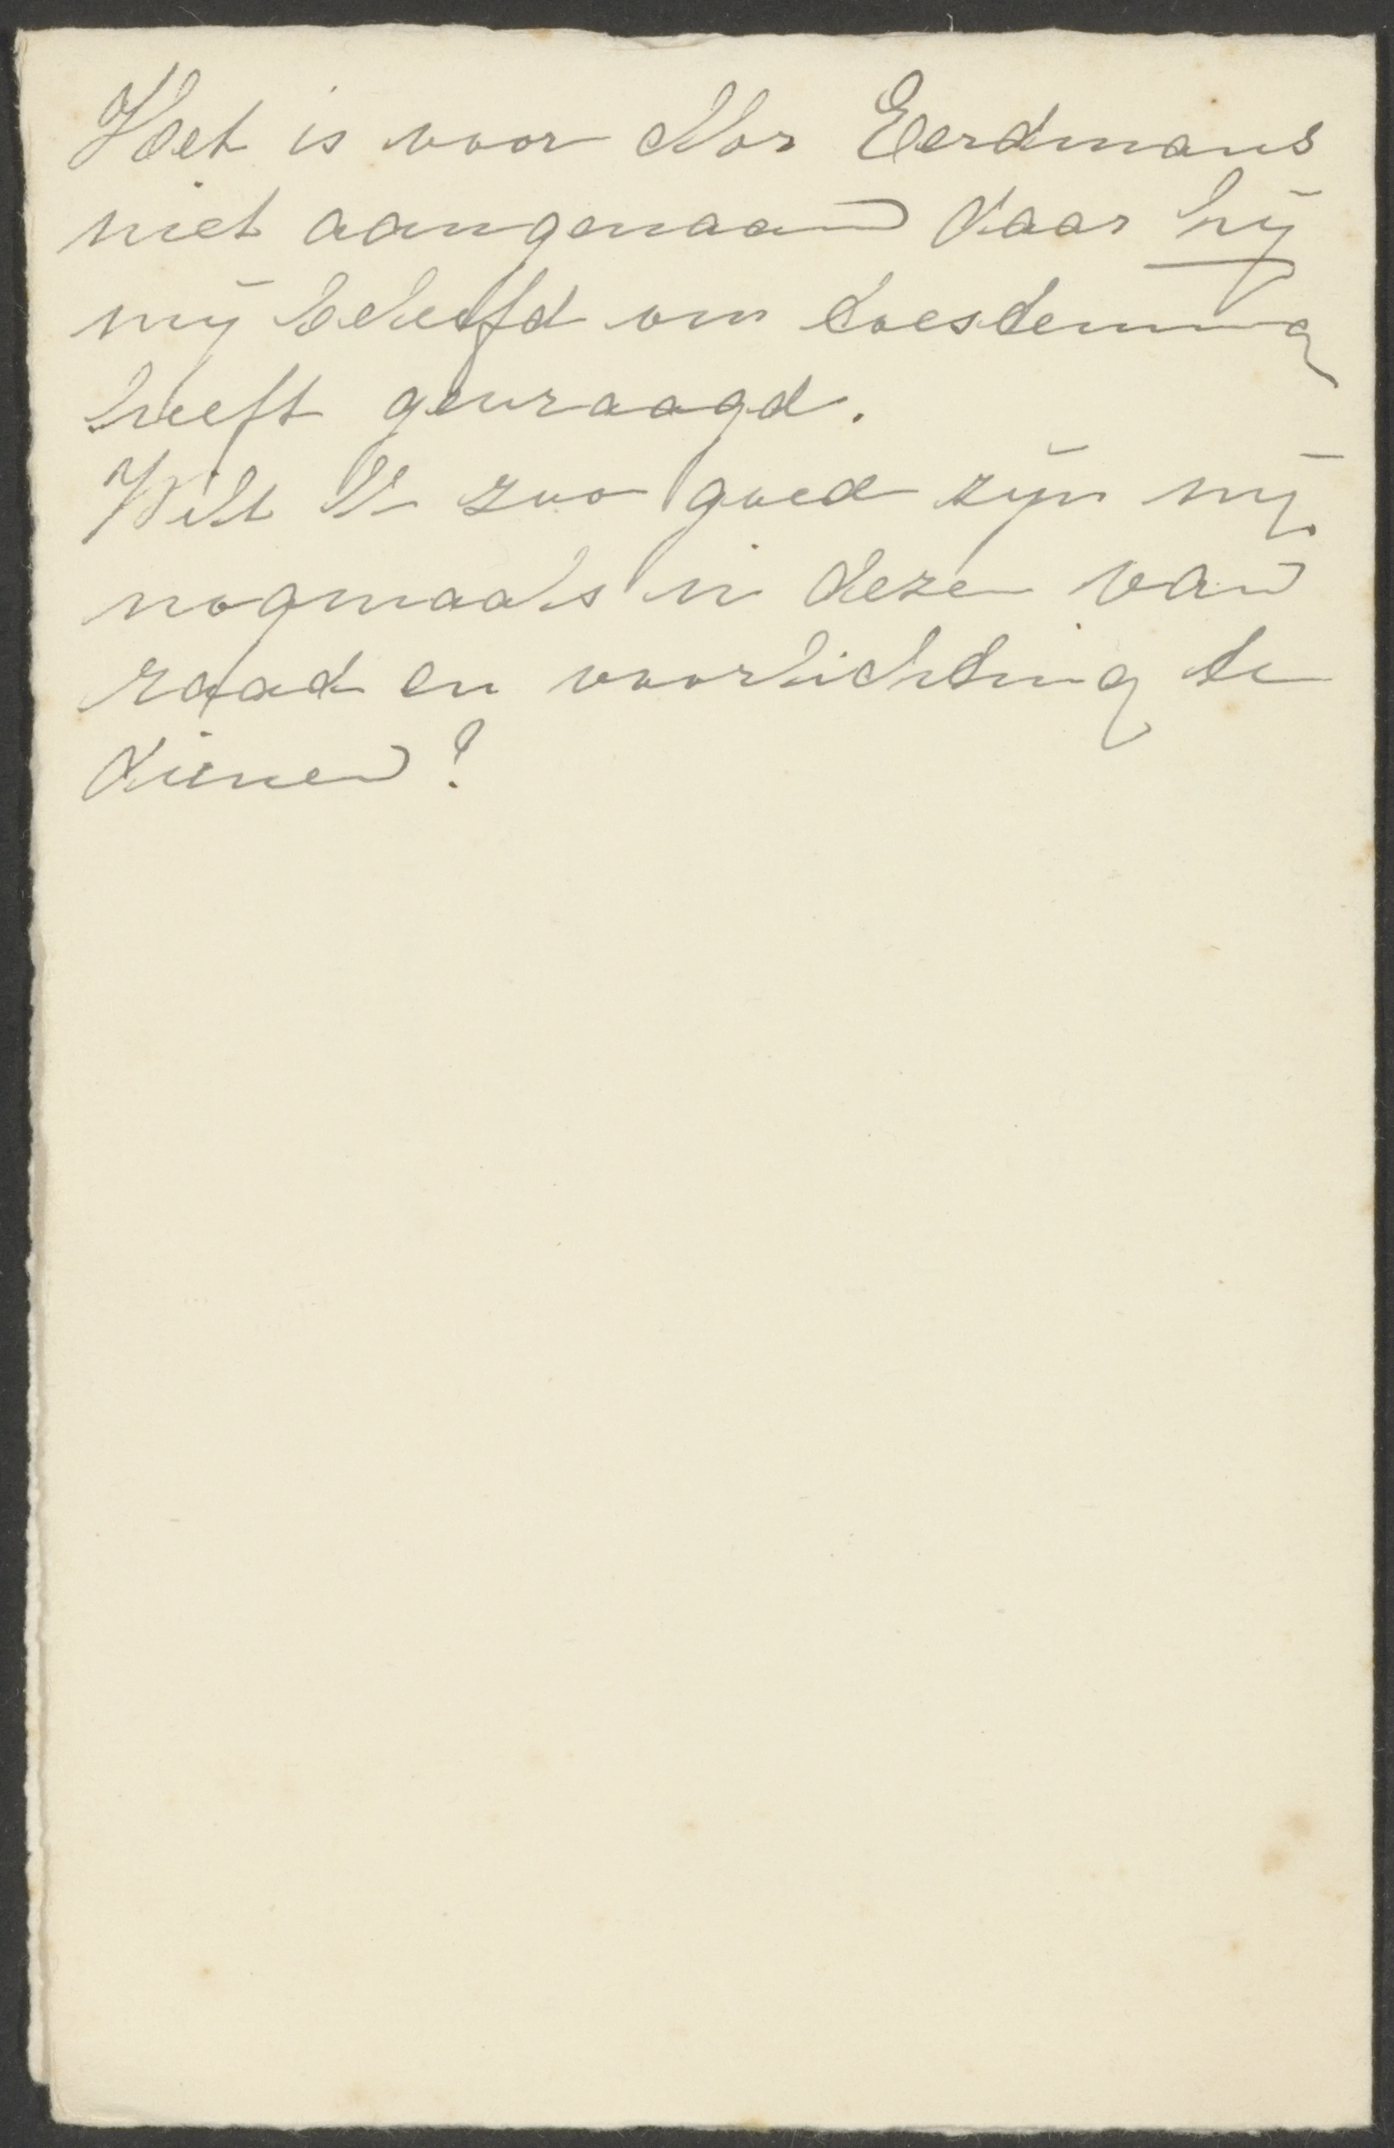 Het is voor Mr Eerdmans
niet aangenaam daar hij
mij beleefd om toestemming
heeft gevraagd.
Wilt U zoo goed zijn mij
nogmaals in dezen van
raad en voorlichting te
dienen?